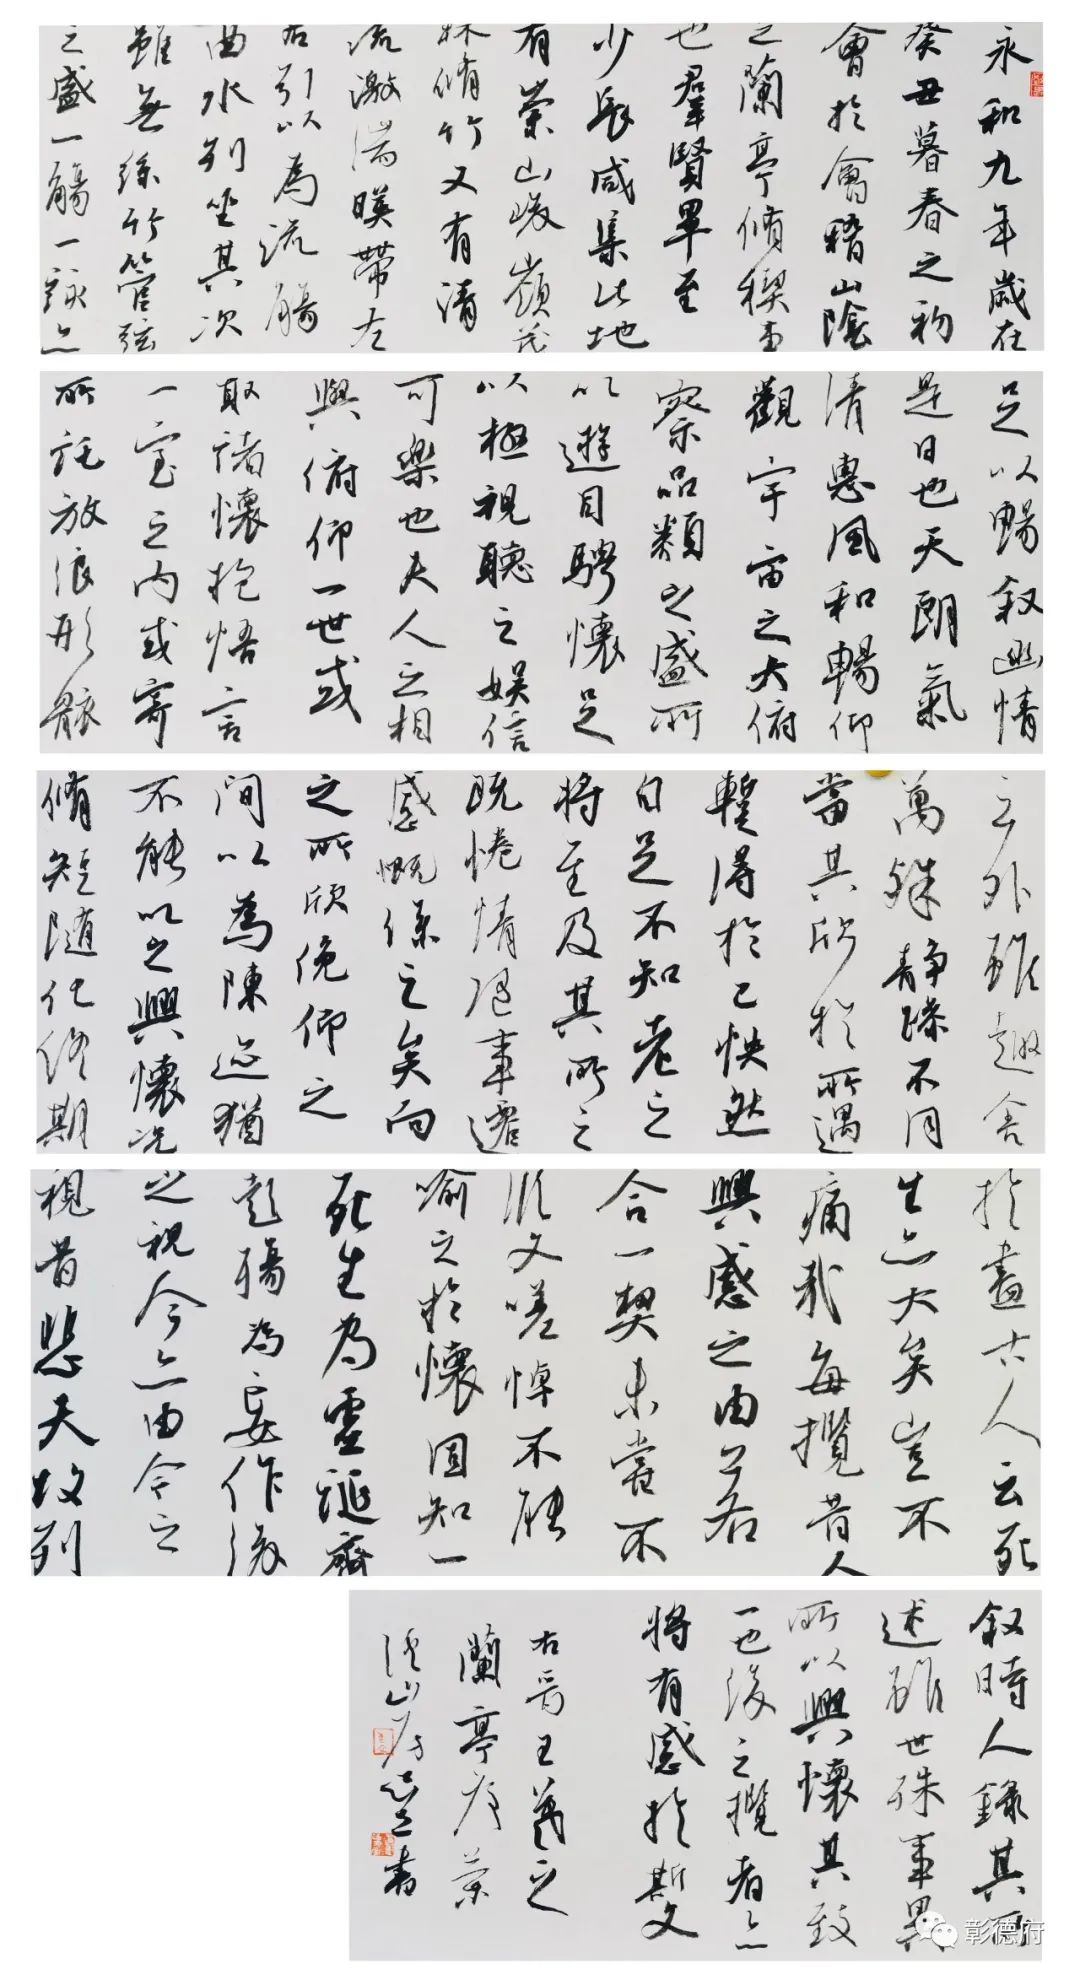 永和九年歲在
癸丑暮春之初
會於會稽山陰
之蘭亭脩稧事
也羣賢畢至
少長咸集此地
有崇山峻嶺茂
林脩竹又有清
流激湍暎帶左
右引以為流觴
曲水列坐其次
雖無絲竹管弦
之盛一觴一詠亦
足以暢叙幽情
是日也天朗氣
清惠風和暢仰
觀宇宙之大俯
察品類之盛所
以遊目騁懷足
以極視聽之娛信
可樂也夫人之相
與俯仰一世或
取諸懷抱悟言
一室之内或寄
所託放浪形骸
之外雖趣舍
萬殊静躁不同
當其欣於所遇
蹔得於己怏然
自足不知老之
將至及其所之
既惓情隨事遷
感慨係之矣向
之所欣俛仰之
間以為陳迹猶
不能以之興懷况
脩短隨化終期
於盡古人云死
生亦大矣豈不
痛哉每攬昔人
興感之由若
合一契未嘗不
臨文嗟悼不能
喻之於懷固知一
死生為虛誕齊
彭殤為妄作後
之視今亦由今之
視昔悲夫故列
叙時人録其所
述雖世殊事異
所以興懷其致
一也後之攬者亦
將有感於斯文
右晉王羲之
蘭亭序
山房 書
彰德府